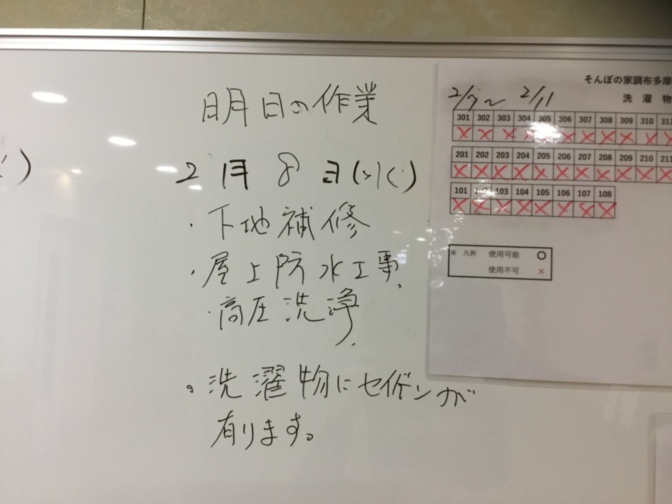 明日の作業
2月8日(水)
・下地補修
・屋上防水工事
・高圧洗浄
・洗濯物にセイゲンが
有ります。
そんぽの家調布多摩
洗濯物
2/7~2/11
301 302 303 304 305 306 307 308 309 310 311
× × × × × × × × × × ×
201 202 203 204 205 206 207 208 209 210 211
× × × × × × × × × × ×
101 102 103 104 105 106 107 108
× × × × × × × ×
※ 凡例 使用可能 ○
使用不可 ×